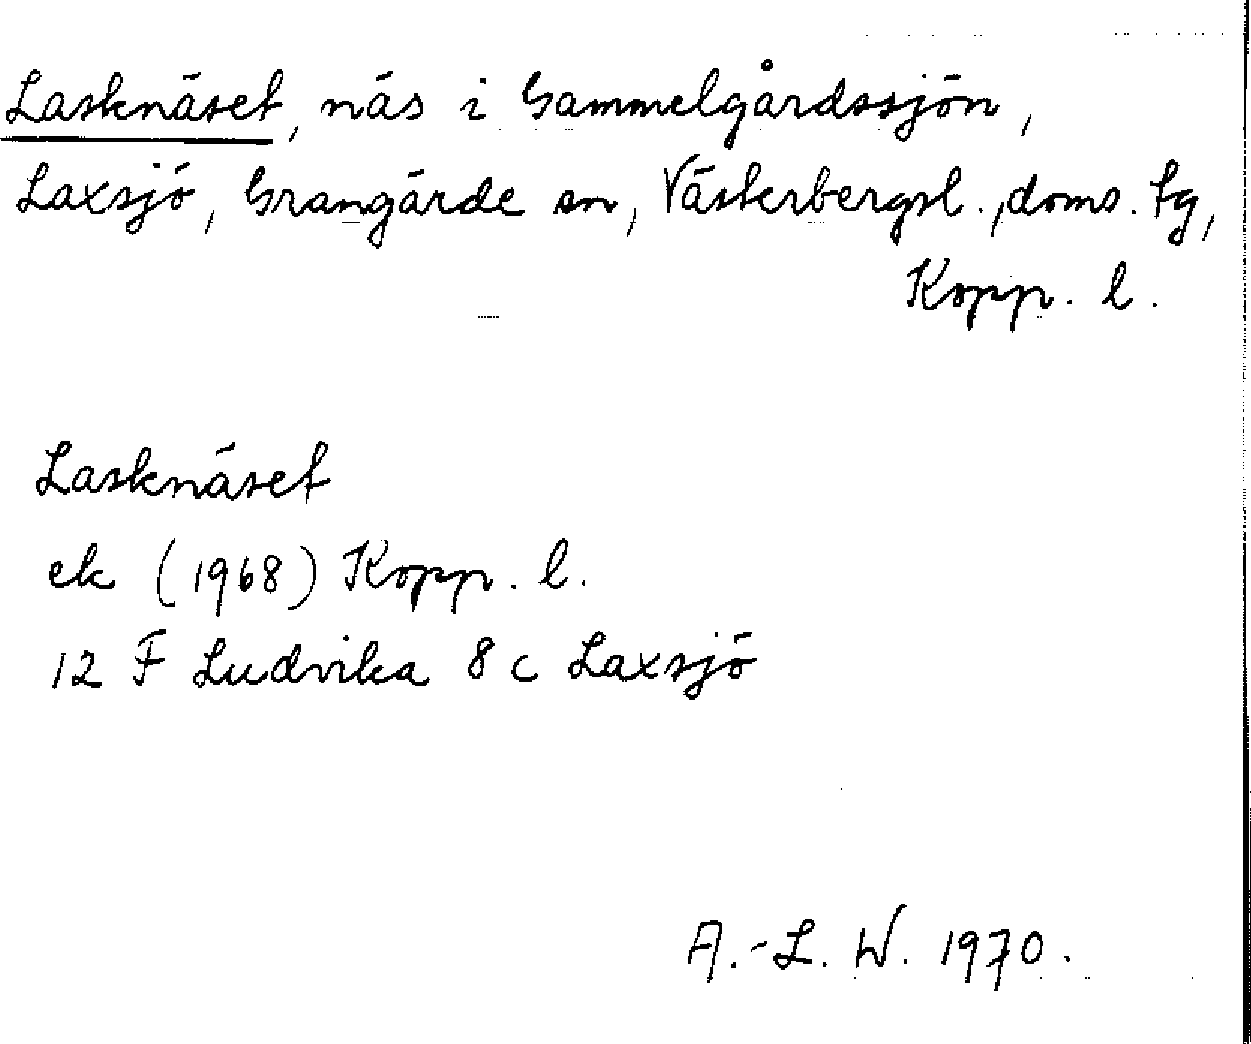 Lasknäset, näs i Gammelgårdssjön,
Laxsjö, Grangärde sn, Västerbergsl., doms. tg,
Kopp. l.
Lasknäset
ek (1968) Kopp. l.
12 F Ludvika 8 c Laxsjö
A.-L. W. 1970.